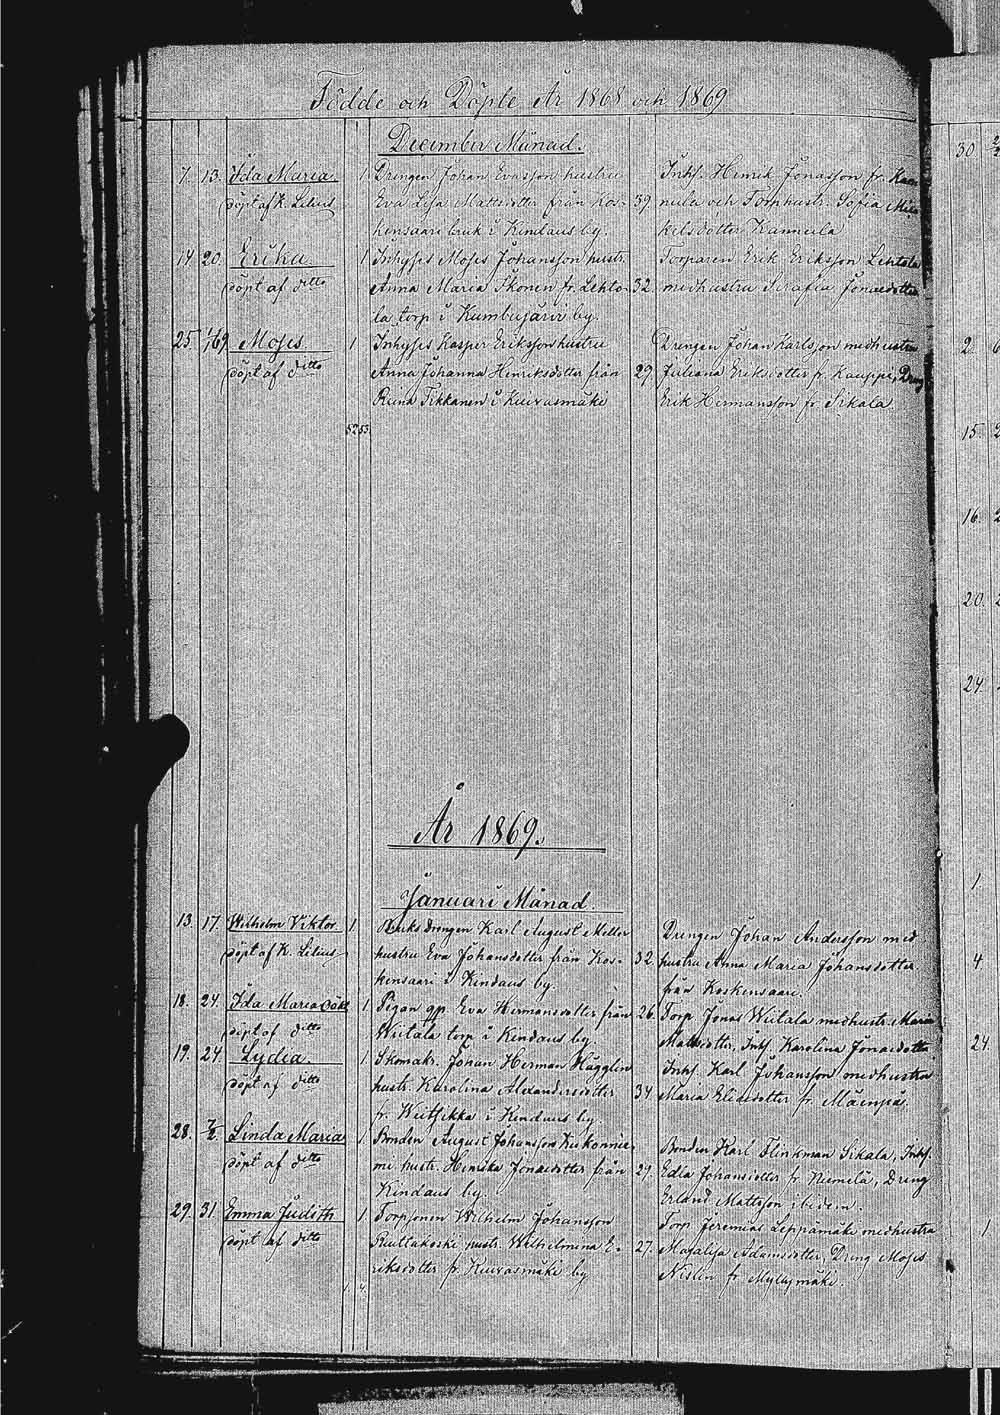 Födde och Döpte År 1868 och 1869
December Månad.
7. 13. Ida Maria. 1. Drengen Johan Evasson hustru Inhs. Henrik Jonasson fr. Kan-
döpt af K. Lilius Eva Lisa Mattsdotter från Kos- 39. nula och Torphustr. Sofia Mic-
kensaari bruk i Kindaus by. kelsdotter Kannula
14 20. Erika 1 Inhyses Moses Johansson hustr. Torparen Erik Eriksson Lehtola
döpt af ditto Anna Maria Ikonen fr. Lehto- 32. medhustru Serafia Jonaedotter
la torp i Kumbujärvi by.
25. 1/1 69 Moses. 1 Inhyses Kasper Eriksson hustru Drengen Johan Karlsson medhustru
döpt af ditto Anna Johanna Henriksdotter från 29 Juliana Eriksdotter fr. Kauppi, Dreng
Tikkanen i Kuivasmäki Erik Hermansson fr. Sikala.
52 53.
År 1869.
Januari Månad.
13. 17. Wilhelm Viktor 1 Bruks drengen Karl August Meller Drengen Johan Andersson med
döpt af K. Lilius hustru Eva Johansdotter från Kos- 32. hustru Anna Maria Johansdotter
kensaari i Kindaus by. från Koskensaari.
18. 24. Ida Maria oäkt 1 Pigan Eva Hermansdotter från 26. Torp. Jonas Wiitala medhustr. Maria
döpt af ditto Wiitala torp i Kindaus by. Mattsdotter, Inhs. Karolina Jonaedotter
19. 24. Lydia. 1. Skomak. Johan Herman Hägglin Inhs. Karl Johansson medhustru
döpt af ditto hustr. Karolina Alexandersdotter 34 Maria Eliaedotter fr. Mäenpää.
fr. i Kindaus by
28. 7/2. Linda Maria 1. Bonden August Johansson Kukonnie- Bonden Karl Flinkman Sikala, Inhs.
döpt af ditto mi hustr. Henrika Jonaedotter från 29. Edla Johansdotter fr. Niemelä, Dreng
Kindaus by. Erland Mattsson ibidem.
29. 31 Emma Judith 1. Torparen Wilhelm Johansson Torp. Jeremias Leppämäki medhustru
döpt af ditto hustr. Wilhelmina E- 27. Adamsdotter, Dreng Moses
riksdotter fr. Kuivasmäki by fr. Myllymäki.
1. 4.
30
2
15.
16.
20.
24.
1.
4.
24.
1